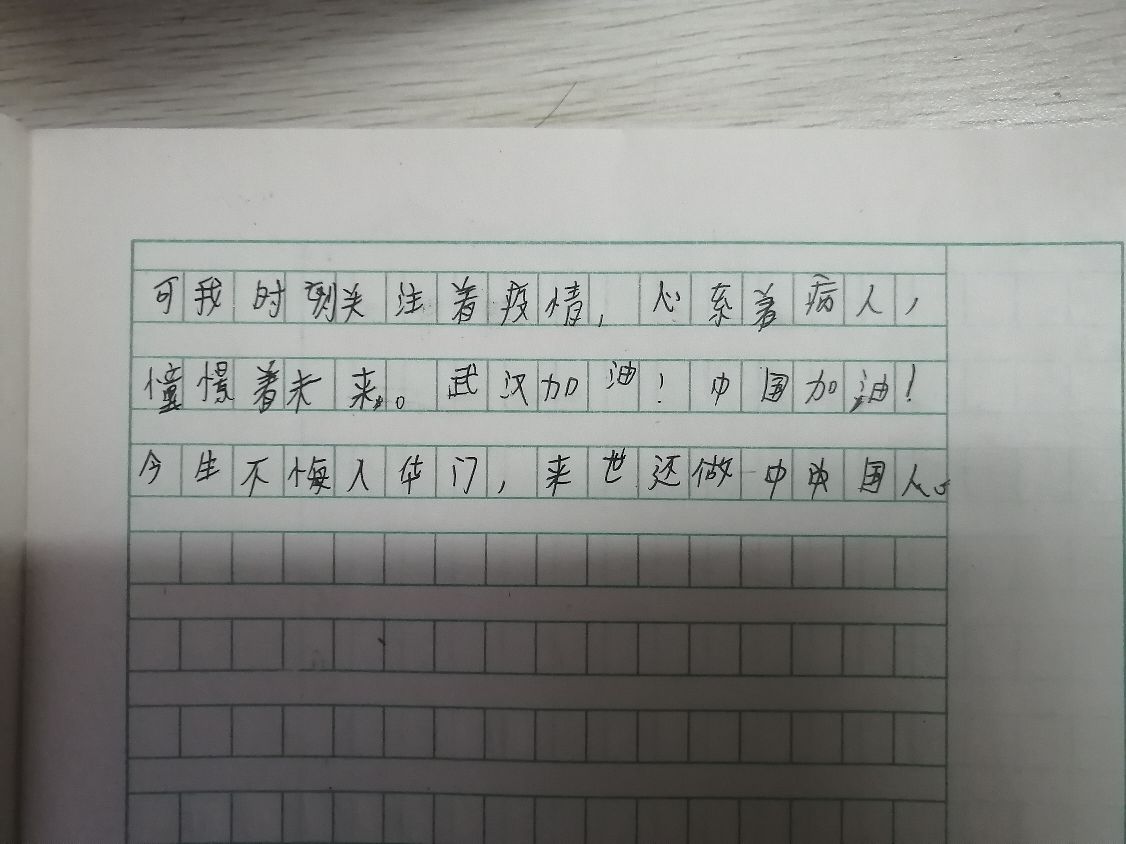 可我时刻关注着疫情，心系着病人，
憧憬着未来。武汉加油！中国加油！
今生不悔入华门，来世还做中中国人。